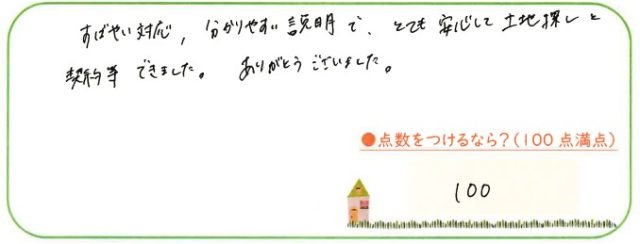 すばやい対応, 分かりやすい説明で、とても安心して土地探しと
契約等できました。 ありがとうございました。
●点数をつけるなら?(100点満点)
100